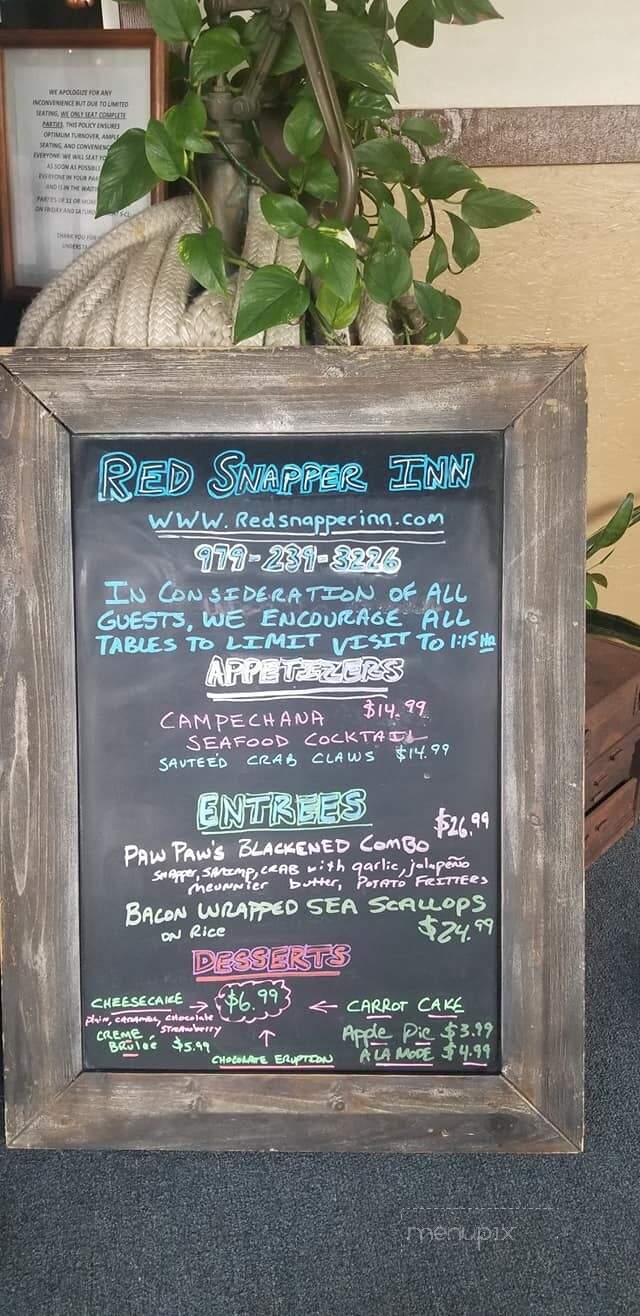 WE APOLOGIZE FOR ANY
INCONVENIENCE BUT DUE TO LIMITED
SEATING, WE ONLY SEAT COMPLETE
PARTIES. THIS POLICY ENSURES
OPTIMUM TURNOVER, AMPLE
SEATING, AND CONVENIENCE
EVERYONE. WE WILL SEAT YO
AS SOON AS POSSIBLE
EVERYONE IN YOUR PAR
AND IS IN THE WAITI
PARTIES OF 11 OR MORE
ON FRIDAY AND SATUR
THANK YOU FOR
UNDERSTA
RED SNAPPER INN
WWW.Redsnapperinn.com
979-239-3226
IN CONSIDERATION OF ALL
GUESTS, WE ENCOURAGE ALL
TABLES TO LIMIT VISIT TO 1:15 HR
APPETIZERS
CAMPECHANA $14.99
SEAFOOD COCKTAIL
SAUTEED CRAB CLAWS $14.99
ENTREES
$26.99
PAW PAW'S BLACKENED COMBO
SNAPPER, SHRIMP, CRAB with garlic, jalapeño
meunnier butter, POTATO FRITTERS
BACON WRAPPED SEA SCALLOPS
ON RICE $24.99
DESSERTS
CHEESECAKE → $6.99 ← CARROT CAKE
plain, caramel, chocolate
strawberry
CREME
Brulee $5.99
↑
CHOCOLATE ERUPTION
Apple Pie $3.99
A LA MODE $4.99
menupix